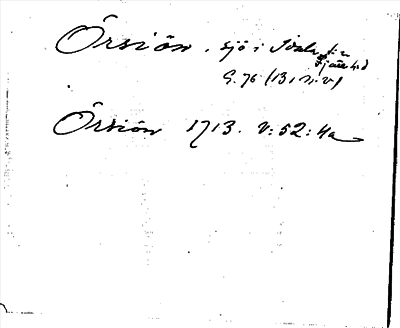 Örsiön. sjö i Idala s:n
Fjäre h:d
G. 76 (13, n.v.)
Örsiön 1713. V: 52: 4a